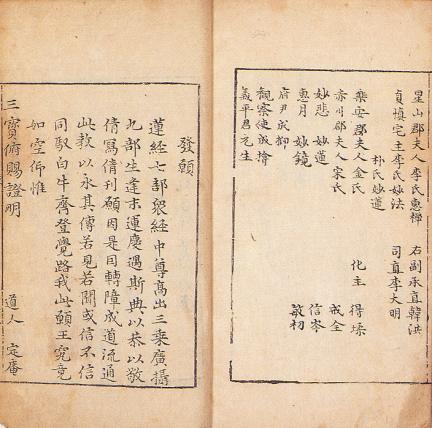 星山郡夫人李氏惠 右副承直韓洪
貞愼宅主李氏妙法 司直李大明
朴氏妙蓮
樂安郡夫人金氏 化主 得琛
郡夫人宋氏 戒全
妙悲 妙蓮 信岑
惠月 妙鏡 敏初
府尹成抑
觀察使成揜
義平君元生
發願
蓮經七部衆經中尊高出三乘廣攝
九部生逢末運慶遇斯典以恭以敬
倩寫倩刊願因是因轉障成道流通
此教以永其傳若見若聞或信不信
同馭白牛齊登覺路我此願王究竟
如空仰惟
三寶俯賜證明
道人 定庵